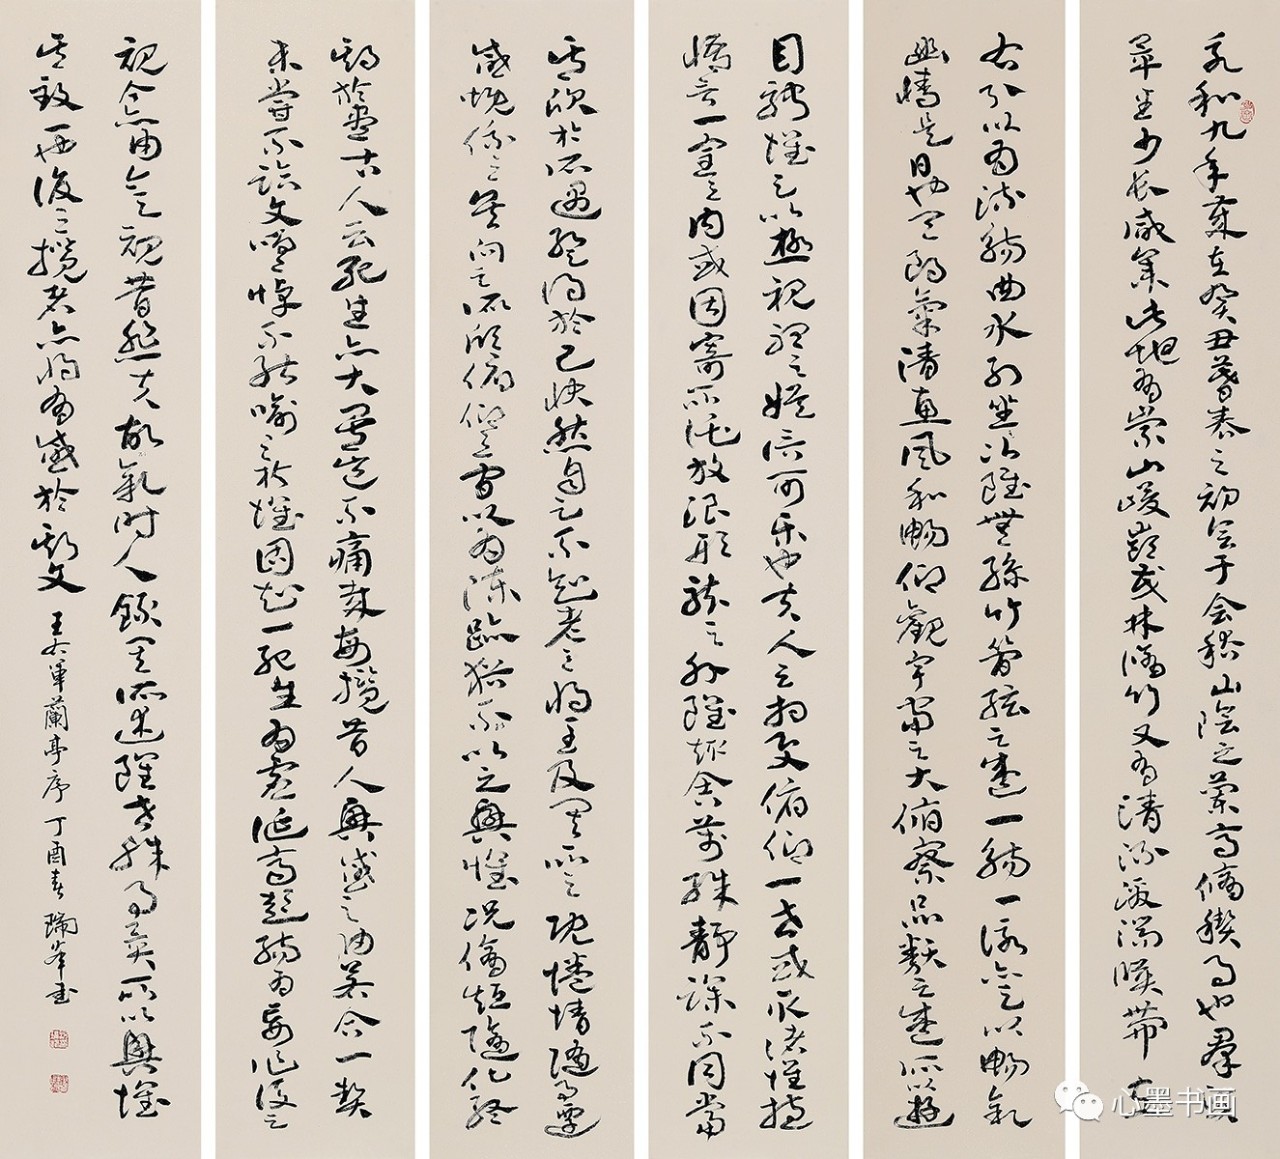 永和九年歲在癸丑暮春之初會于会稽山陰之蘭亭脩稧事也群賢
畢至少長咸集此地有崇山峻嶺茂林脩竹又有清流激湍暎帶左
右引以為流觴曲水列坐其次雖無絲竹管弦之盛一觴一詠亦足以暢叙
幽情是日也天朗氣清惠風和暢仰觀宇宙之大俯察品類之盛所以遊
目騁懷足以極視聽之娛信可樂也夫人之相與俯仰一世或取諸懷抱
悟言一室之內或因寄所託放浪形骸之外雖趣舍萬殊靜躁不同當
其欣於所遇暫得於己快然自足不知老之將至及其所之既惓情隨事遷
感慨係之矣向之所欣俯仰之間以為陳跡猶不以之興懷況脩短隨化終
期於盡古人云死生亦大矣豈不痛哉每攬昔人興感之由若合一契
未嘗不臨文嗟悼不能喻之於懷固知一死生為虛誕齊彭殤為妄作後之
視今亦由今之視昔悲夫故叙時人錄其所述雖世殊事異所以興懷
其致一也後之攬者亦將有感於斯文 王右軍蘭亭序 丁酉春 瑞峯書
心墨书画